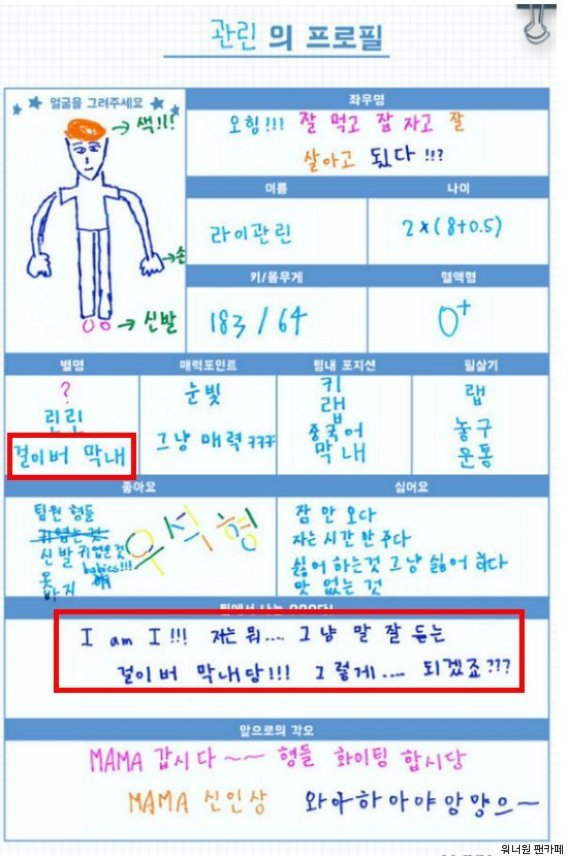 관린 의 프로필
얼굴을 그려주세요
색!!!
손
신발
좌우명
오힝!!! 잘 먹고 잡 자고 잘
살아고 됬다 !!?
이름
라이관린
나이
2×(8+0.5)
키/몸무게
183 / 64
혈액형
O+
별명
?
린린
걸이버 막내
매력포인트
눈빛
그냥 매력 ㅋㅋㅋ
팀내 포지션
키
랩
중국어
막내
필살기
랩
농구
운통
좋아요
팀원 형들
귀엽는 것
신발 귀엽운 것
babies!!!
옷
바지
우석형
싫어요
잠 안 오다
자는 시간 안 주다
싫어 하는것 그냥 싫어 하다
맛 없는 것
팀에서 나는 OOO다!
I am I !!! 저는 뭐.... 그냥 말 잘 듣는
걸이버 막내당!!! 그렇게.... 되겠죠???
앞으로의 각오
MAMA 갑시다~~ 형들 화이팅 합시당
MAMA 신인상 와아하아야앙먕으~
워너원 팬카페